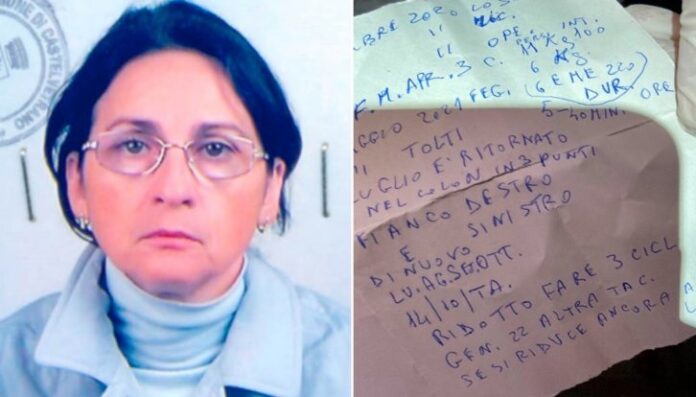 COMUNE DI CASTELVETRANO
BRE 2020
" 
" OPE. INT.
F.M. APR. 3 C. 11 KS 100
6 KS.
GGIO 2021 FEG. (6 E ME 220
DUR. ORE
5-40 MIN.
" TOLTI
LUGLIO E' RITORNATO
NEL COLON IN 3 PUNTI
FIANCO DESTRO
E SINISTRO
DI NUOVO
LU.AG.SE.OTT.
14/10/TA.
RIDOTTO FARE 3 CICL
GEN. 22 ALTRA TAC.
SE SI RIDUCE ANCORA